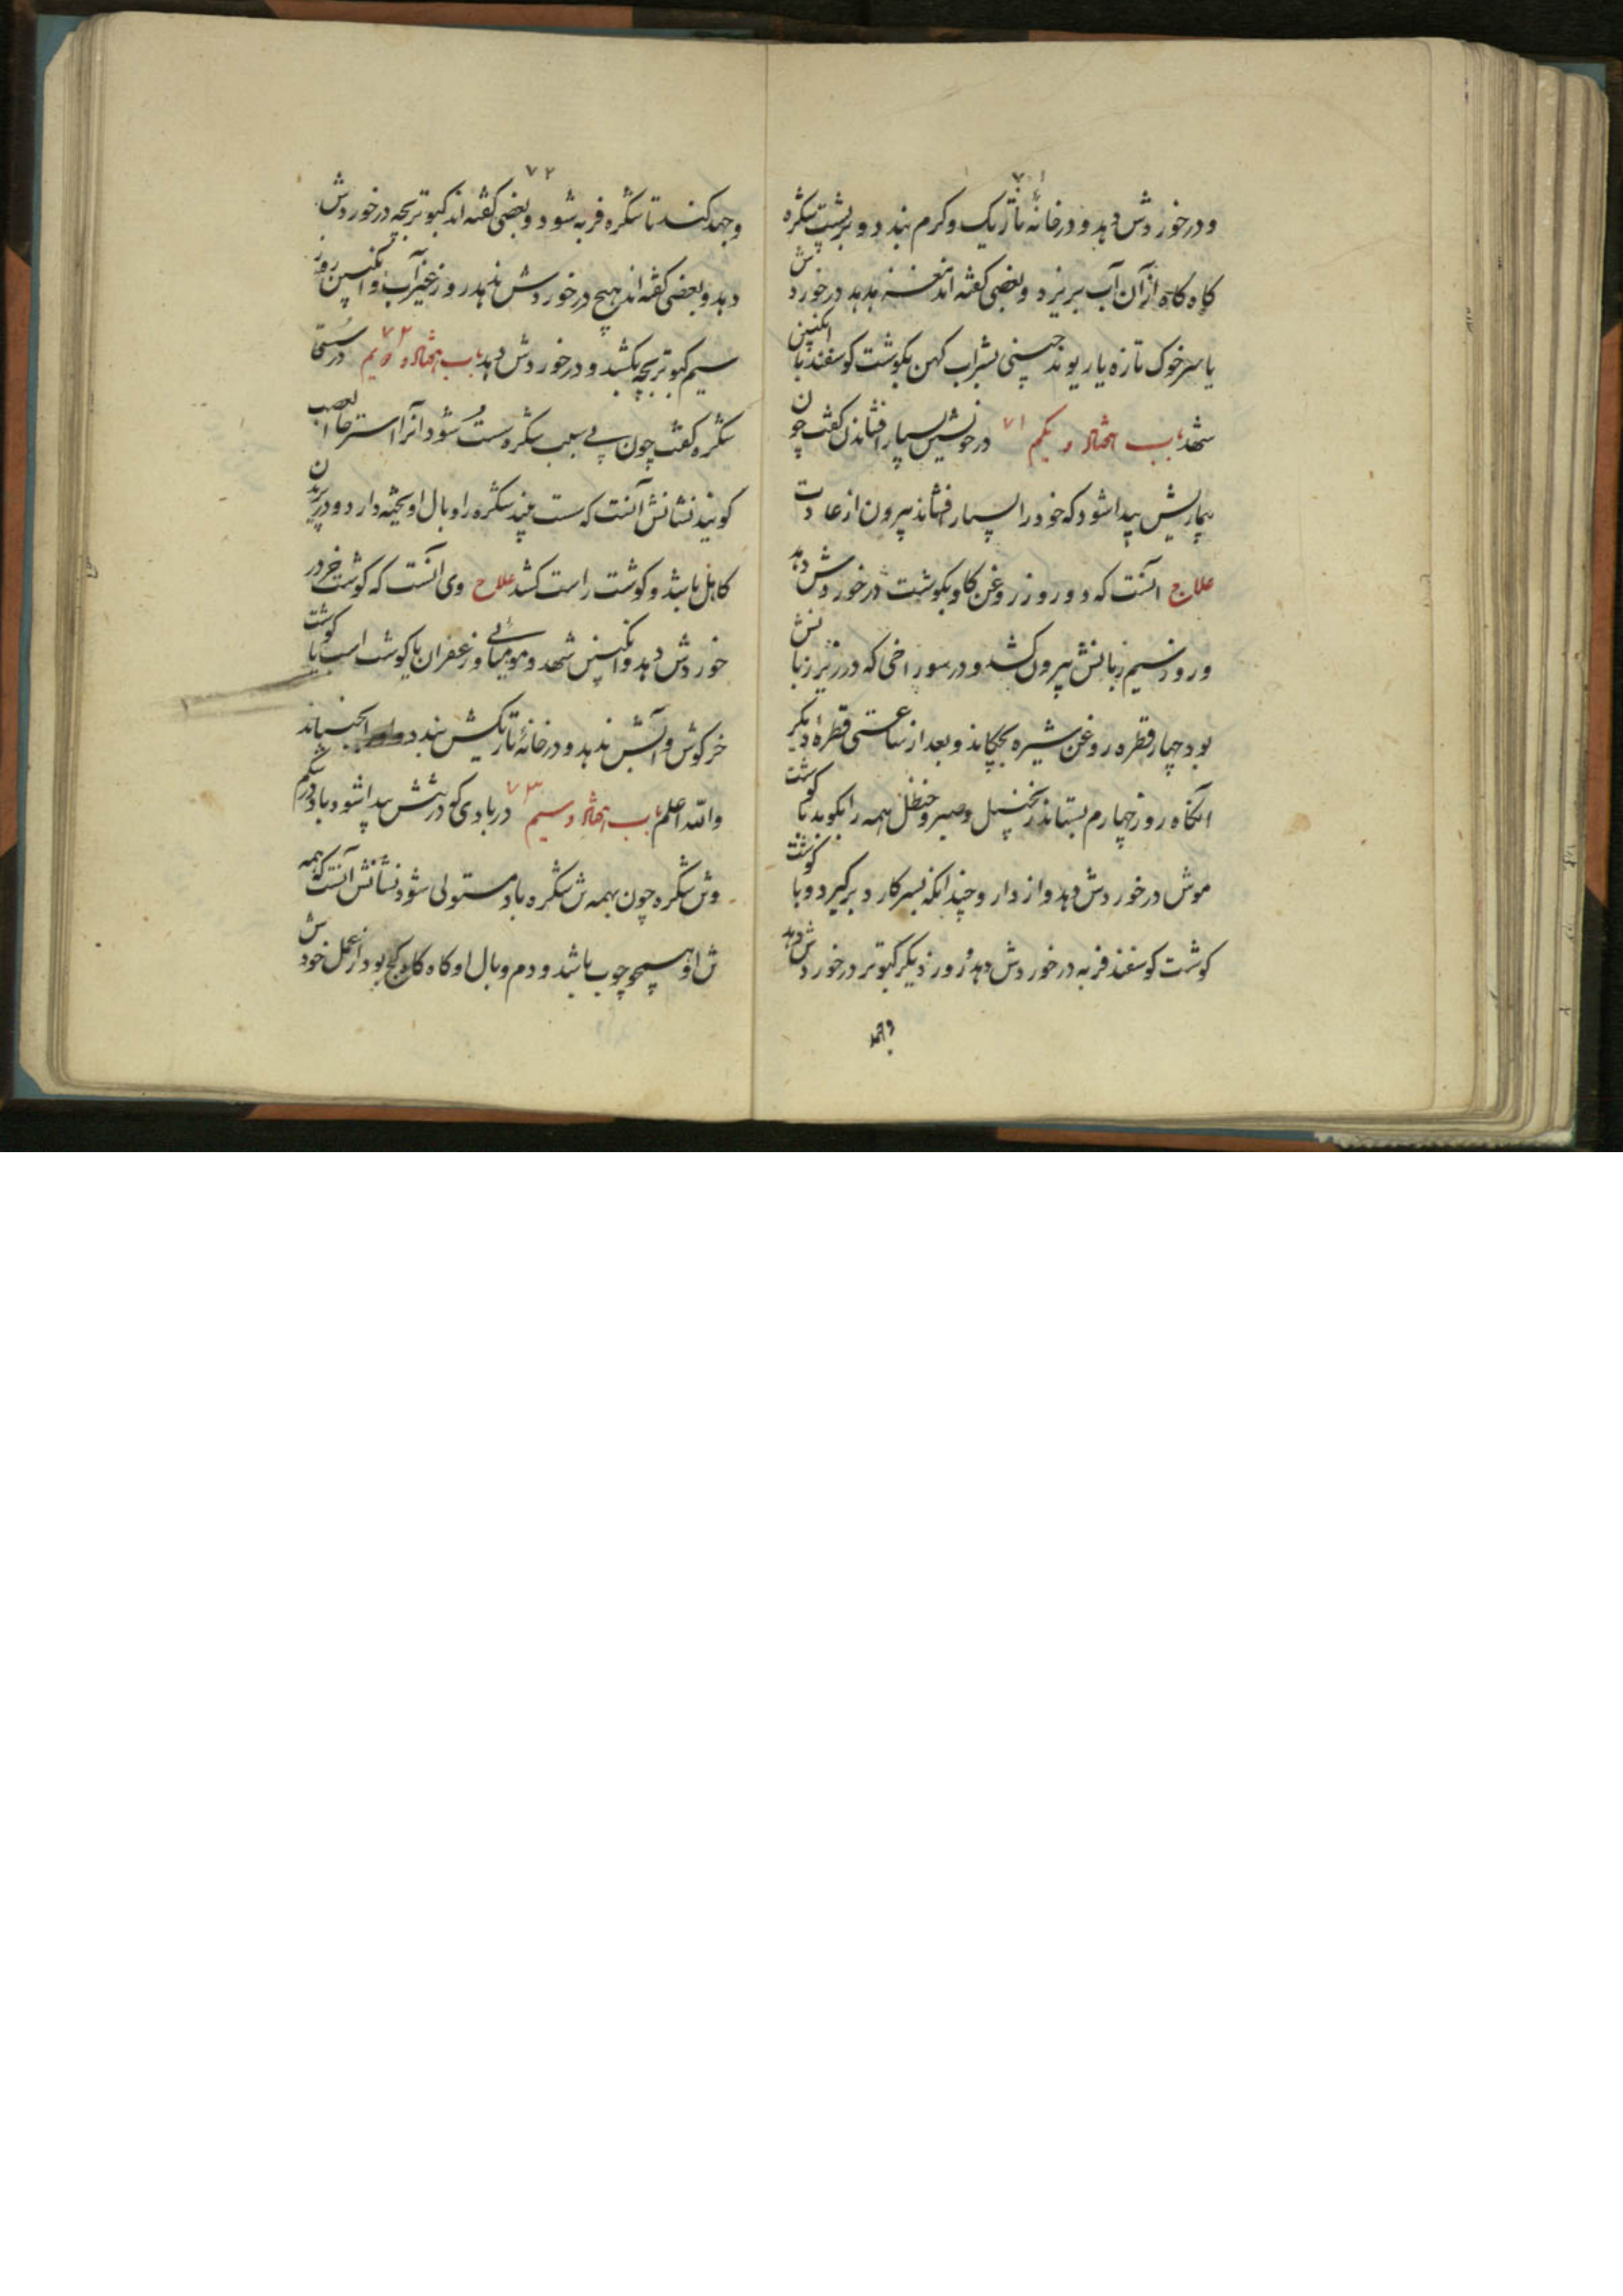 ۷۱
ودر خوردش دهد ودر خانهٔ تاریک وکرم بندد وبر پشت شکره
کاه کاه از آن آب بریزد وبعضی کفته اند مغز هدهد در خوردش
یا سرخوک تازه یا ریوند چینی بشراب کهن بکوشت کوسفند با انکبین
شهد باب هفتاد ویکم ۷۱ در خویشتن بسیار افشاندن کفت چون
بیماریش پیدا شود که خود را بسیار افشاند بیرون از عادت
علاج آنست که دو روز روغن کاو بکوشت در خوردش دهد
وروز سیم زبانش بیرون کشد ودر سوراخی که در زیر زبانش
بود چهار قطره روغن شیره بچکاند وبعد از ساعتی قطرهٔ دیکر
آنکاه روز چهارم بستاند زنجبیل وصبر وحنظل همه را بکوبد با کوشت
موش در خوردش دهد واز دارو چندانکه بسر کارد برکیرد وبا کوشت
کوشت کوسفند فربه در خوردش دهد وروز دیکر کبوتر در خوردش دهد
وجهد
۷۲
وجهد کند تا شکره فربه شود وبعضی کفته اند کبوتر بچه در خوردش
دهد وبعضی کفته اند هیچ در خوردش ندهد روز بغیر آب وانکبین روز
سیم کبوتر بچه بکشد ودر خوردش دهد باب هفتاد ودویم ۷۲ در سستی
شکره کفت چون پی عصب شکره سست شود آنرا استرخا العصب
کویند نشانش آنست که سست بیند شکره را وبال آویخته دارد ودر پریدن
کاهل باشد وکوشت راست کشد علاج وی آنست که کوشت خر در
خوردش دهد وانکبین شهد ومومیائی وزعفران با کوشت اسب یا کوشت
خرکوش وآبش ندهد ودر خانهٔ تاریکش بندد
والله اعلم باب هفتاد وسیم ۷۳ در بادی که در تنش پیدا شود باد در شکم
وتن شکره چون بهمه تن شکره باد مستولی شود نشانش آنست که همه
تن او همچو چوب باشد ودم وبال او کاه کاه کج بود از عمل خودش